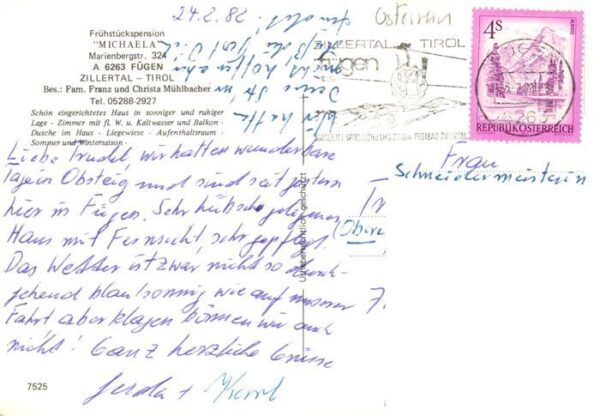 24.2.82
Österreich
Frühstückspension
"MICHAELA"
Marienbergstr. 324
A 6263 FÜGEN
ZILLERTAL – TIROL
Bes.: Fam. Franz und Christa Mühlbacher
Tel. 05288-2927
Schön eingerichtetes Haus in sonniger und ruhiger
Lage - Zimmer mit fl. W. u. Kaltwasser und Balkon -
Dusche im Haus - Liegewiese - Aufenthaltsraum -
Sommer und Wintersaison -
ZILLERTAL TIROL
fügen
FREIBAD
4S
REPUBLIK ÖSTERREICH
6263
Liebe Trudel, wir hatten wunderbare
Tage in Obsteig und sind seit gestern
hier in Fügen. Sehr hübsch gelegenes
Haus mit Fernsicht, sehr gepflegt.
Das Wetter ist zwar nicht so durch-
gehend blau/sonnig wie auf unserer
Fahrt aber klagen können wir auch
nicht! Ganz herzliche Grüsse
Gerda + Karl
Frau
Schneidermeisterin
(Obere
7.
Urheberrechtlich geschützt
7525